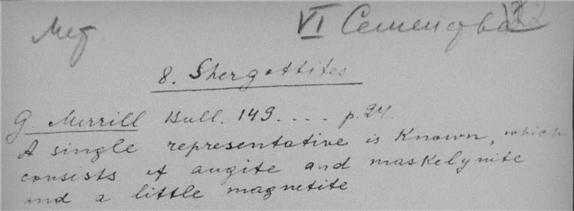 Мет VI Семенова
8. Shergottites
G Merrill Bull. 149 .... p. 24.
A single representative is known, which
consists of augite and maskelynite
and a little magnetite